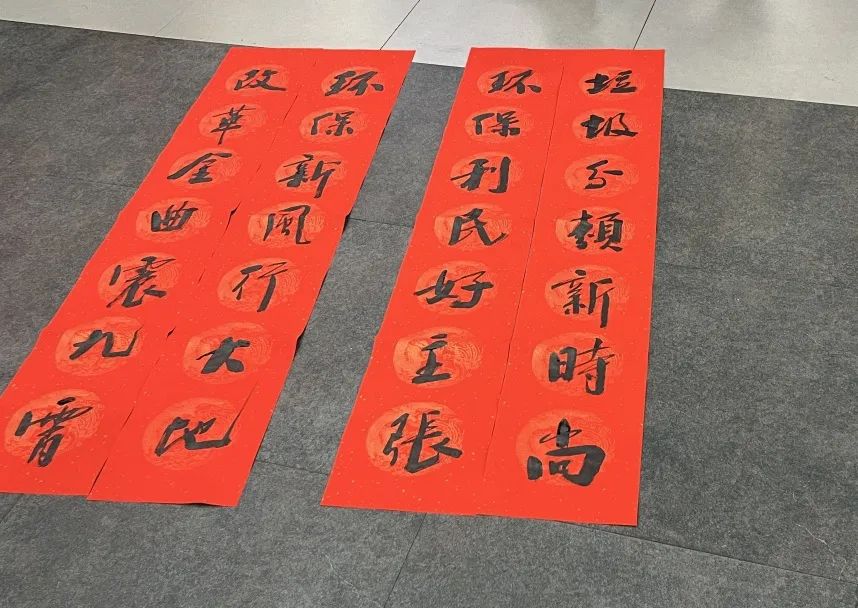 垃圾分類新時尚
环保利民好主張
环保新風行大地
改革金曲震九霄